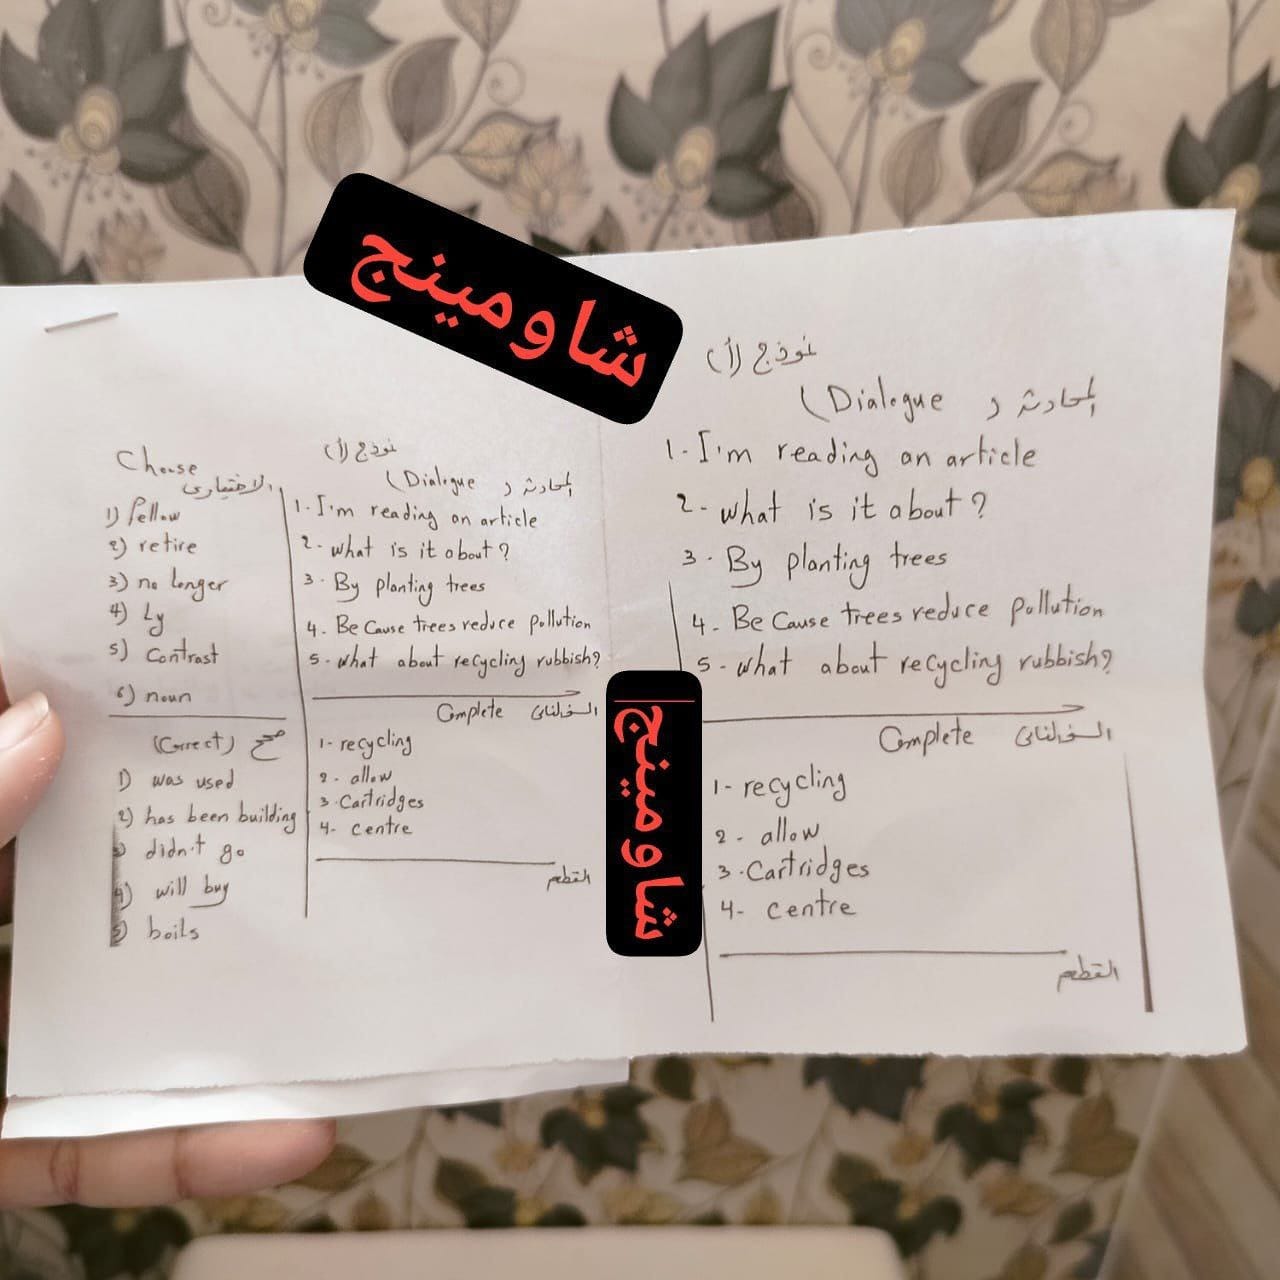 شاومينج
Choose
الاختياري
1) fellow
2) retire
3) no longer
4) Ly
5) Contrast
6) noun
(Correct) صحح
1) was used
2) has been building
3) didn't go
4) will buy
5) boils
نموذج (أ)
(Dialogue المحادثة)
1-I'm reading an article
2-what is it about?
3- By planting trees
4-Be Cause trees reduce pollution
5-what about recycling rubbish?
Complete
1- recycling
2- allow
3-Cartridges
4- centre
القطعه
شاومينج
نموذج (أ)
(Dialogue المحادثة)
1-I'm reading an article
2-what is it about?
3- By planting trees
4-Be Cause trees reduce pollution
5-what about recycling rubbish?
Complete
1- recycling
2- allow
3-Cartridges
4- centre
القطعه